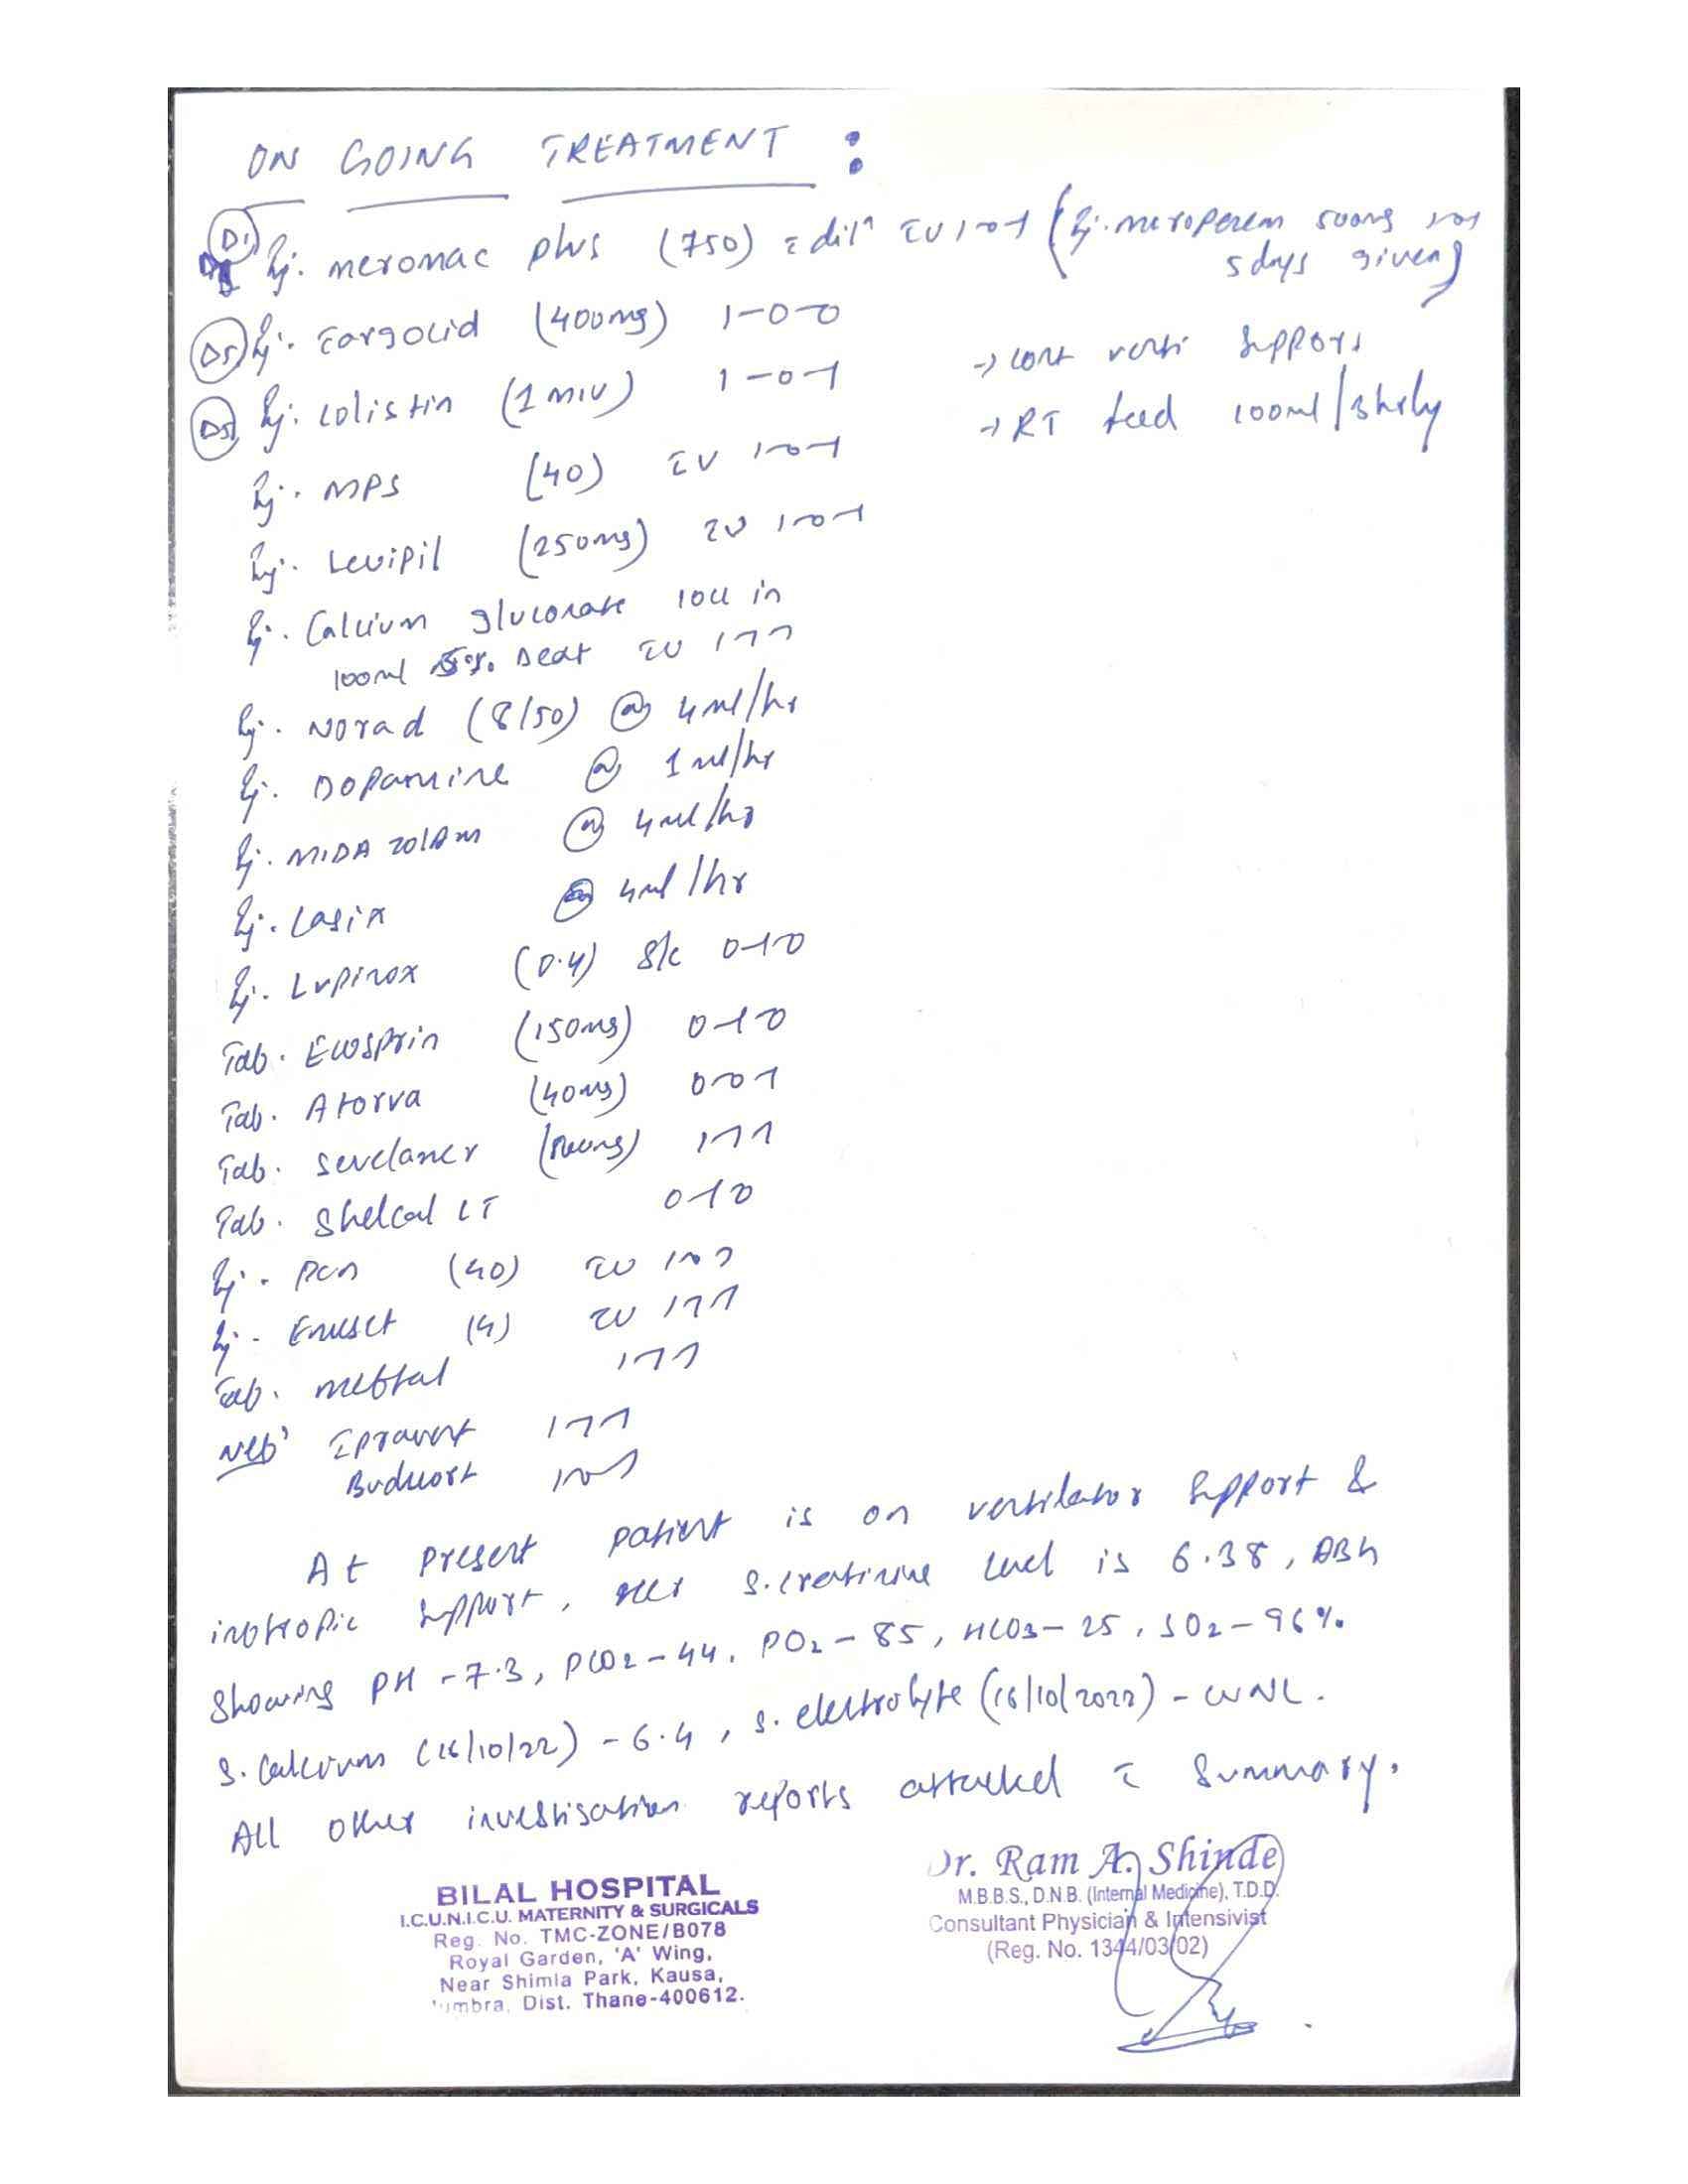 ON GOING TREATMENT :
D1 Inj. meromac plus (750) c̄ dilⁿ IV 1-0-1 (Inj. meropenem 500mg 1-0-1
5 days given)
D5 Inj. Targocid (400mg) 1-0-0
→ cont venti support
D5 Inj. colistin (1 miu) 1-0-1
→ RT feed 100ml/3hrly
Inj. MPS (40) IV 1-0-1
Inj. Levipil (250mg) IV 1-0-1
Inj. Calcium gluconate 10cc in
100ml 5%. Dext IV 1-1-1
Inj. Norad (8/50) @ 4ml/hr
Inj. Dopamine @ 1ml/hr
Inj. MIDAzolAm @ 4ml/hr
Inj. Lasix @ 4ml/hr
Inj. Lupinox (0.4) S/c 0-1-0
Tab. Ecosprin (150mg) 0-1-0
Tab. Atorva (40mg) 0-0-1
Tab. sevelamer 1-1-1
Tab. Shelcal CT 0-1-0
Inj. Pan (40) IV 1-0-1
Inj. Emeset (4) IV 1-1-1
Tab. meftal 1-1-1
Neb' Ipravent 1-1-1
Budecort 1-0-1
At present patient is on ventilator support &
inotropic support, her s.creatinine level is 6.38, ABG
showing PH - 7.3, PCO2 - 44, PO2 - 85, HCO3 - 25, SO2 - 96%.
S. Calcium (16/10/22) - 6.4, S. electrolyte (16/10/2022) - WNL.
All other investigation reports attached c̄ summary.
BILAL HOSPITAL
I.C.U.N.I.C.U. MATERNITY & SURGICALS
Reg. No. TMC-ZONE/B078
Royal Garden, 'A' Wing,
Near Shimla Park, Kausa,
umbra, Dist. Thane-400612.
Dr. Ram A. Shinde
M.B.B.S., D.N.B. (Internal Medicine), T.D.D.
Consultant Physician & Intensivist
(Reg. No. 1344/03/02)